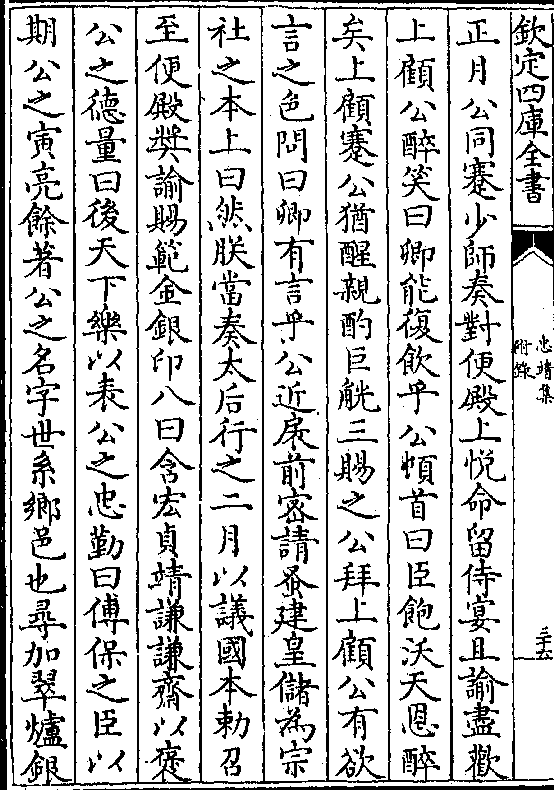 欽定四庫全書
忠靖集
附錄
二十六
正月公同蹇少師奏對便殿上悅命留侍宴且諭盡歡
上顧公醉笑曰卿能復飲乎公頓首曰臣飽沃天恩醉
矣上顧蹇公猶醒親酌巨觥三賜之公拜上顧公有欲
言之色問曰卿有言乎公近扆前密請蚤建皇儲為宗
社之本上曰然朕當奏太后行之二月以議國本勅召
至便殿奬諭賜範金銀印八曰含宏貞靖謙謙齋以褒
公之德量曰後天下樂以表公之忠勤曰傅保之臣以
期公之寅亮餘著公之名字世系鄉邑也尋加翠爐銀